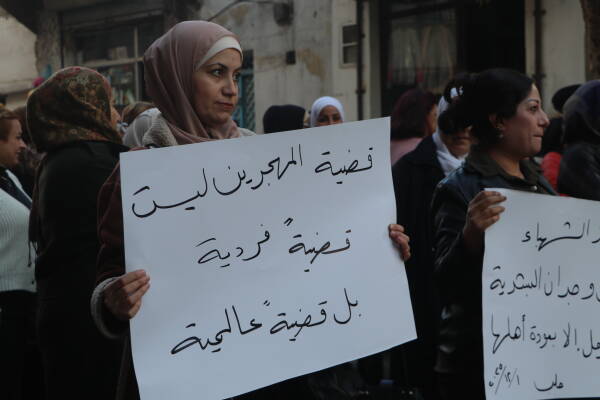 قضية المهجرين ليست
قضيةً فردية
بل قضيةً عالمية
الشهباء
وجدان البشرية
إلا بعودة أهلها
حلب